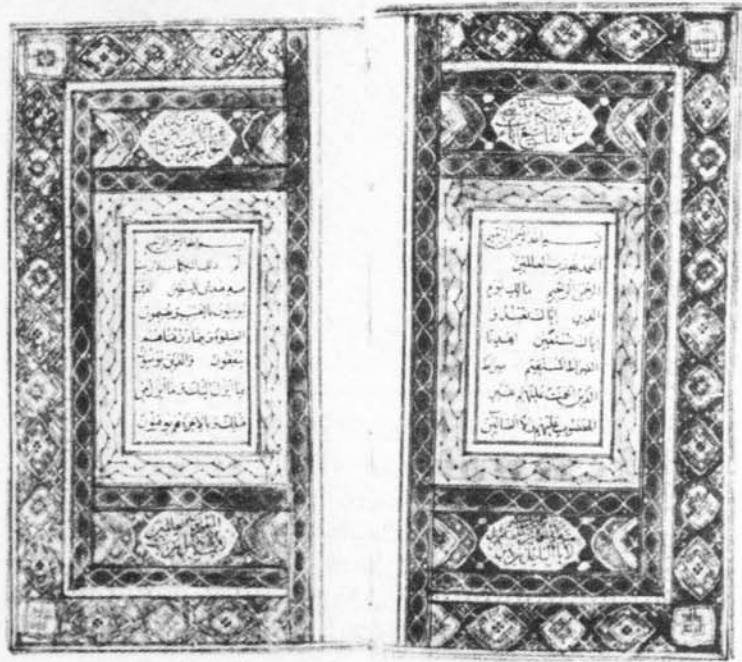 بسم الله الرحمن الرحيم
الحمد لله رب العالمين
الرحمن الرحيم مالك يوم
الدين اياك نعبد و
اياك نستعين اهدنا
الصراط المستقيم صراط
الذين انعمت عليهم غير
المغضوب عليهم ولا الضالين
بسم الله الرحمن الرحيم
الم ذلك الكتاب لا ريب
فيه هدى للمتقين الذين
يؤمنون بالغيب ويقيمون
الصلوة ومما رزقناهم
ينفقون والذين يؤمنون
بما انزل اليك وما انزل من
قبلك وبالاخرة هم يوقنون